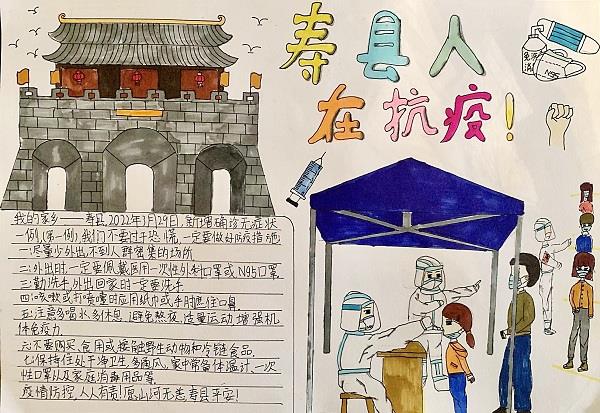 寿县人
在抗疫!
免洗
消
N95
我的家乡——寿县,2022年1月29日,新增确诊无症状
一例,(第一例),我们不要过于恐慌,一定要做好防疫措施
一:尽量少外出,不到人群密集的场所
二:外出时一定要佩戴医用一次性外科口罩或N95口罩
三:勤洗手,外出回家时一定要洗手
四:咳嗽或打喷嚏时应用纸巾或手肘遮住口鼻
五:注意多喝水,多休息,避免熬夜,适量运动,增强机
体免疫力.
六:不要购买,食用或接触野生动物和冷链食品.
七:保持住处干净卫生,多通风,家中常备体温计,一次
性口罩以及家庭消毒用品等.
疫情防控,人人有责!愿山河无恙寿县平安!